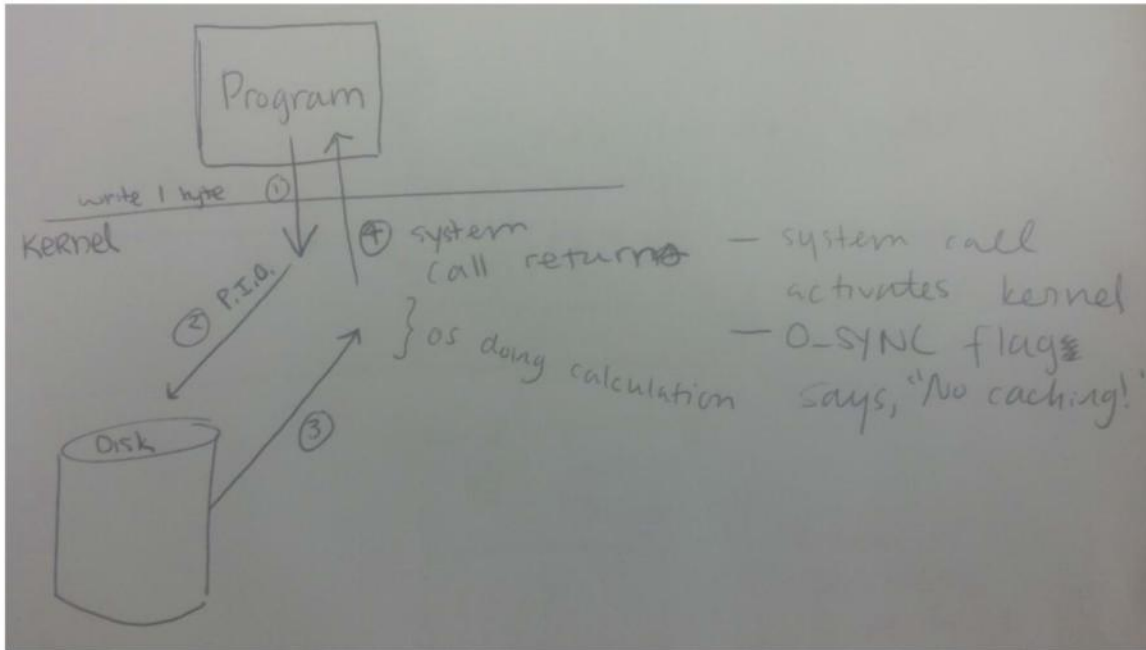 Program
write 1 byte ①
Kernel
② P.I.O.
Disk
③
④ system
call return
} os doing calculation
— system call
activates kernel
— O_SYNC flag
says, "No caching!"